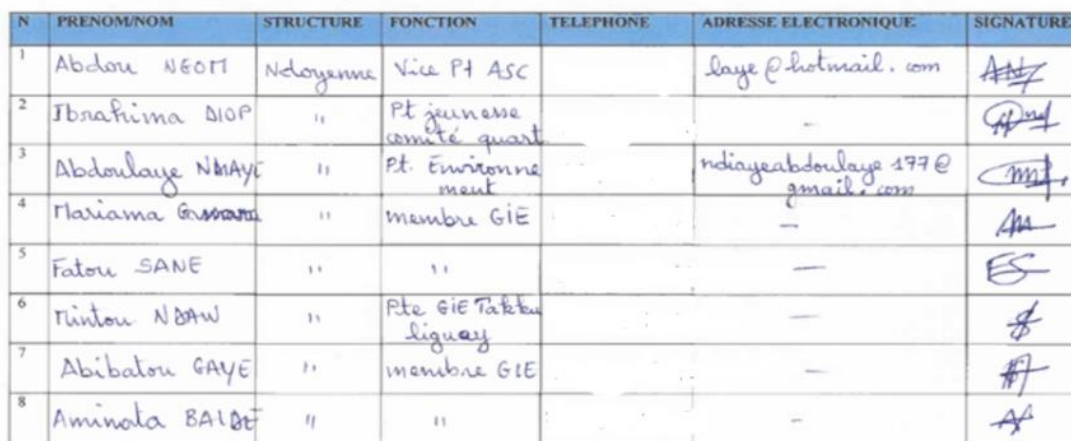 N PRENOM/NOM STRUCTURE FONCTION TELEPHONE ADRESSE ELECTRONIQUE SIGNATURE
1 Abdou NEOM Ndoyenne Vice Pt ASC laye@hotmail.com
2 Ibrahima DIOP " Pt jeunesse
comité quart -
3 Abdoulaye NDIAYE " Pt. Environne
ment ndiayeabdoulaye177@
gmail.com
4 Mariama " membre GIE -
5 Fatou SANE " " -
6 Mintou NDAW " Pte GIE Takku
liguey -
7 Abibatou GAYE " membre GIE -
8 Aminata BALDE " " -